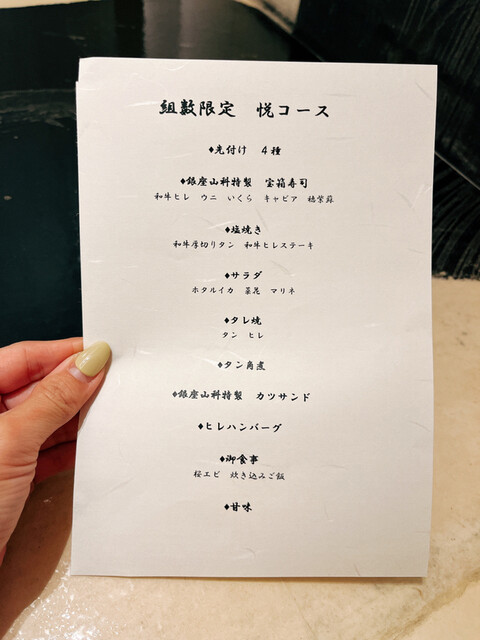 組数限定 悦コース
♦先付け 4種
♦銀座山科特製 宝箱寿司
和牛ヒレ ウニ いくら キャビア 穂紫蘇
♦塩焼き
和牛厚切りタン 和牛ヒレステーキ
♦サラダ
ホタルイカ 菜花 マリネ
♦タレ焼
タン ヒレ
♦タン角煮
♦銀座山科特製 カツサンド
♦ヒレハンバーグ
♦御食事
桜エビ 炊き込みご飯
♦甘味